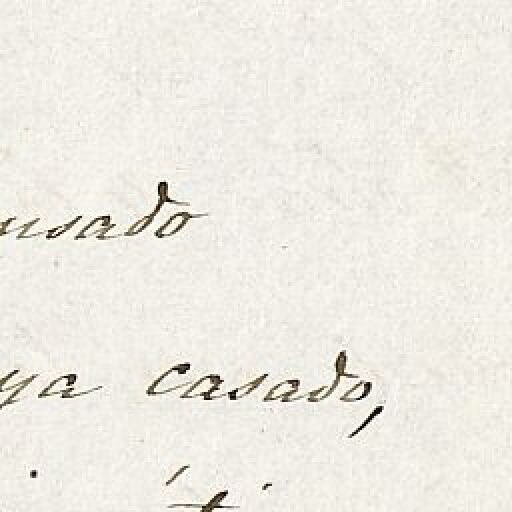 usado
ya casado,